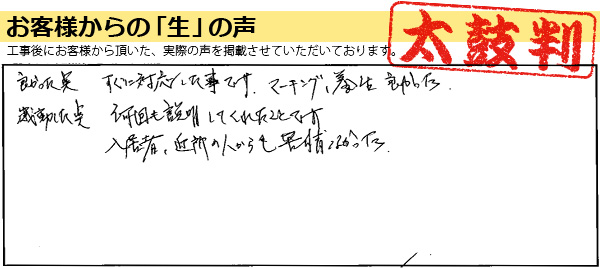 お客様からの「生」の声
太鼓判
工事後にお客様から頂いた、実際の声を掲載させていただいております。
良かった点 すぐに対応した事です。マーキング、養生良かった。
感動した点 何回も説明してくれたことです
入居者、近所の人からも苦情なかった。